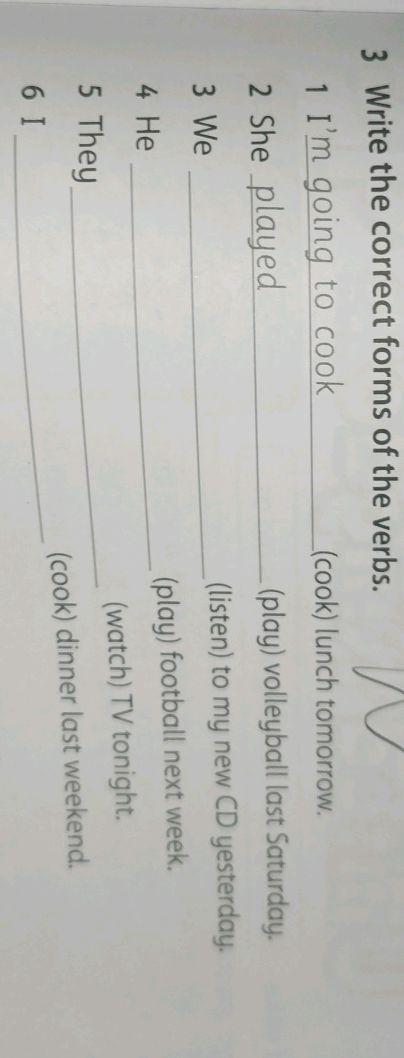 3 Write the correct forms of the verbs.
1 I'm going to cook (cook) lunch tomorrow.
2 She played (play) volleyball last Saturday.
3 We (listen) to my new CD yesterday.
4 He (play) football next week.
5 They (watch) TV tonight.
6 I (cook) dinner last weekend.